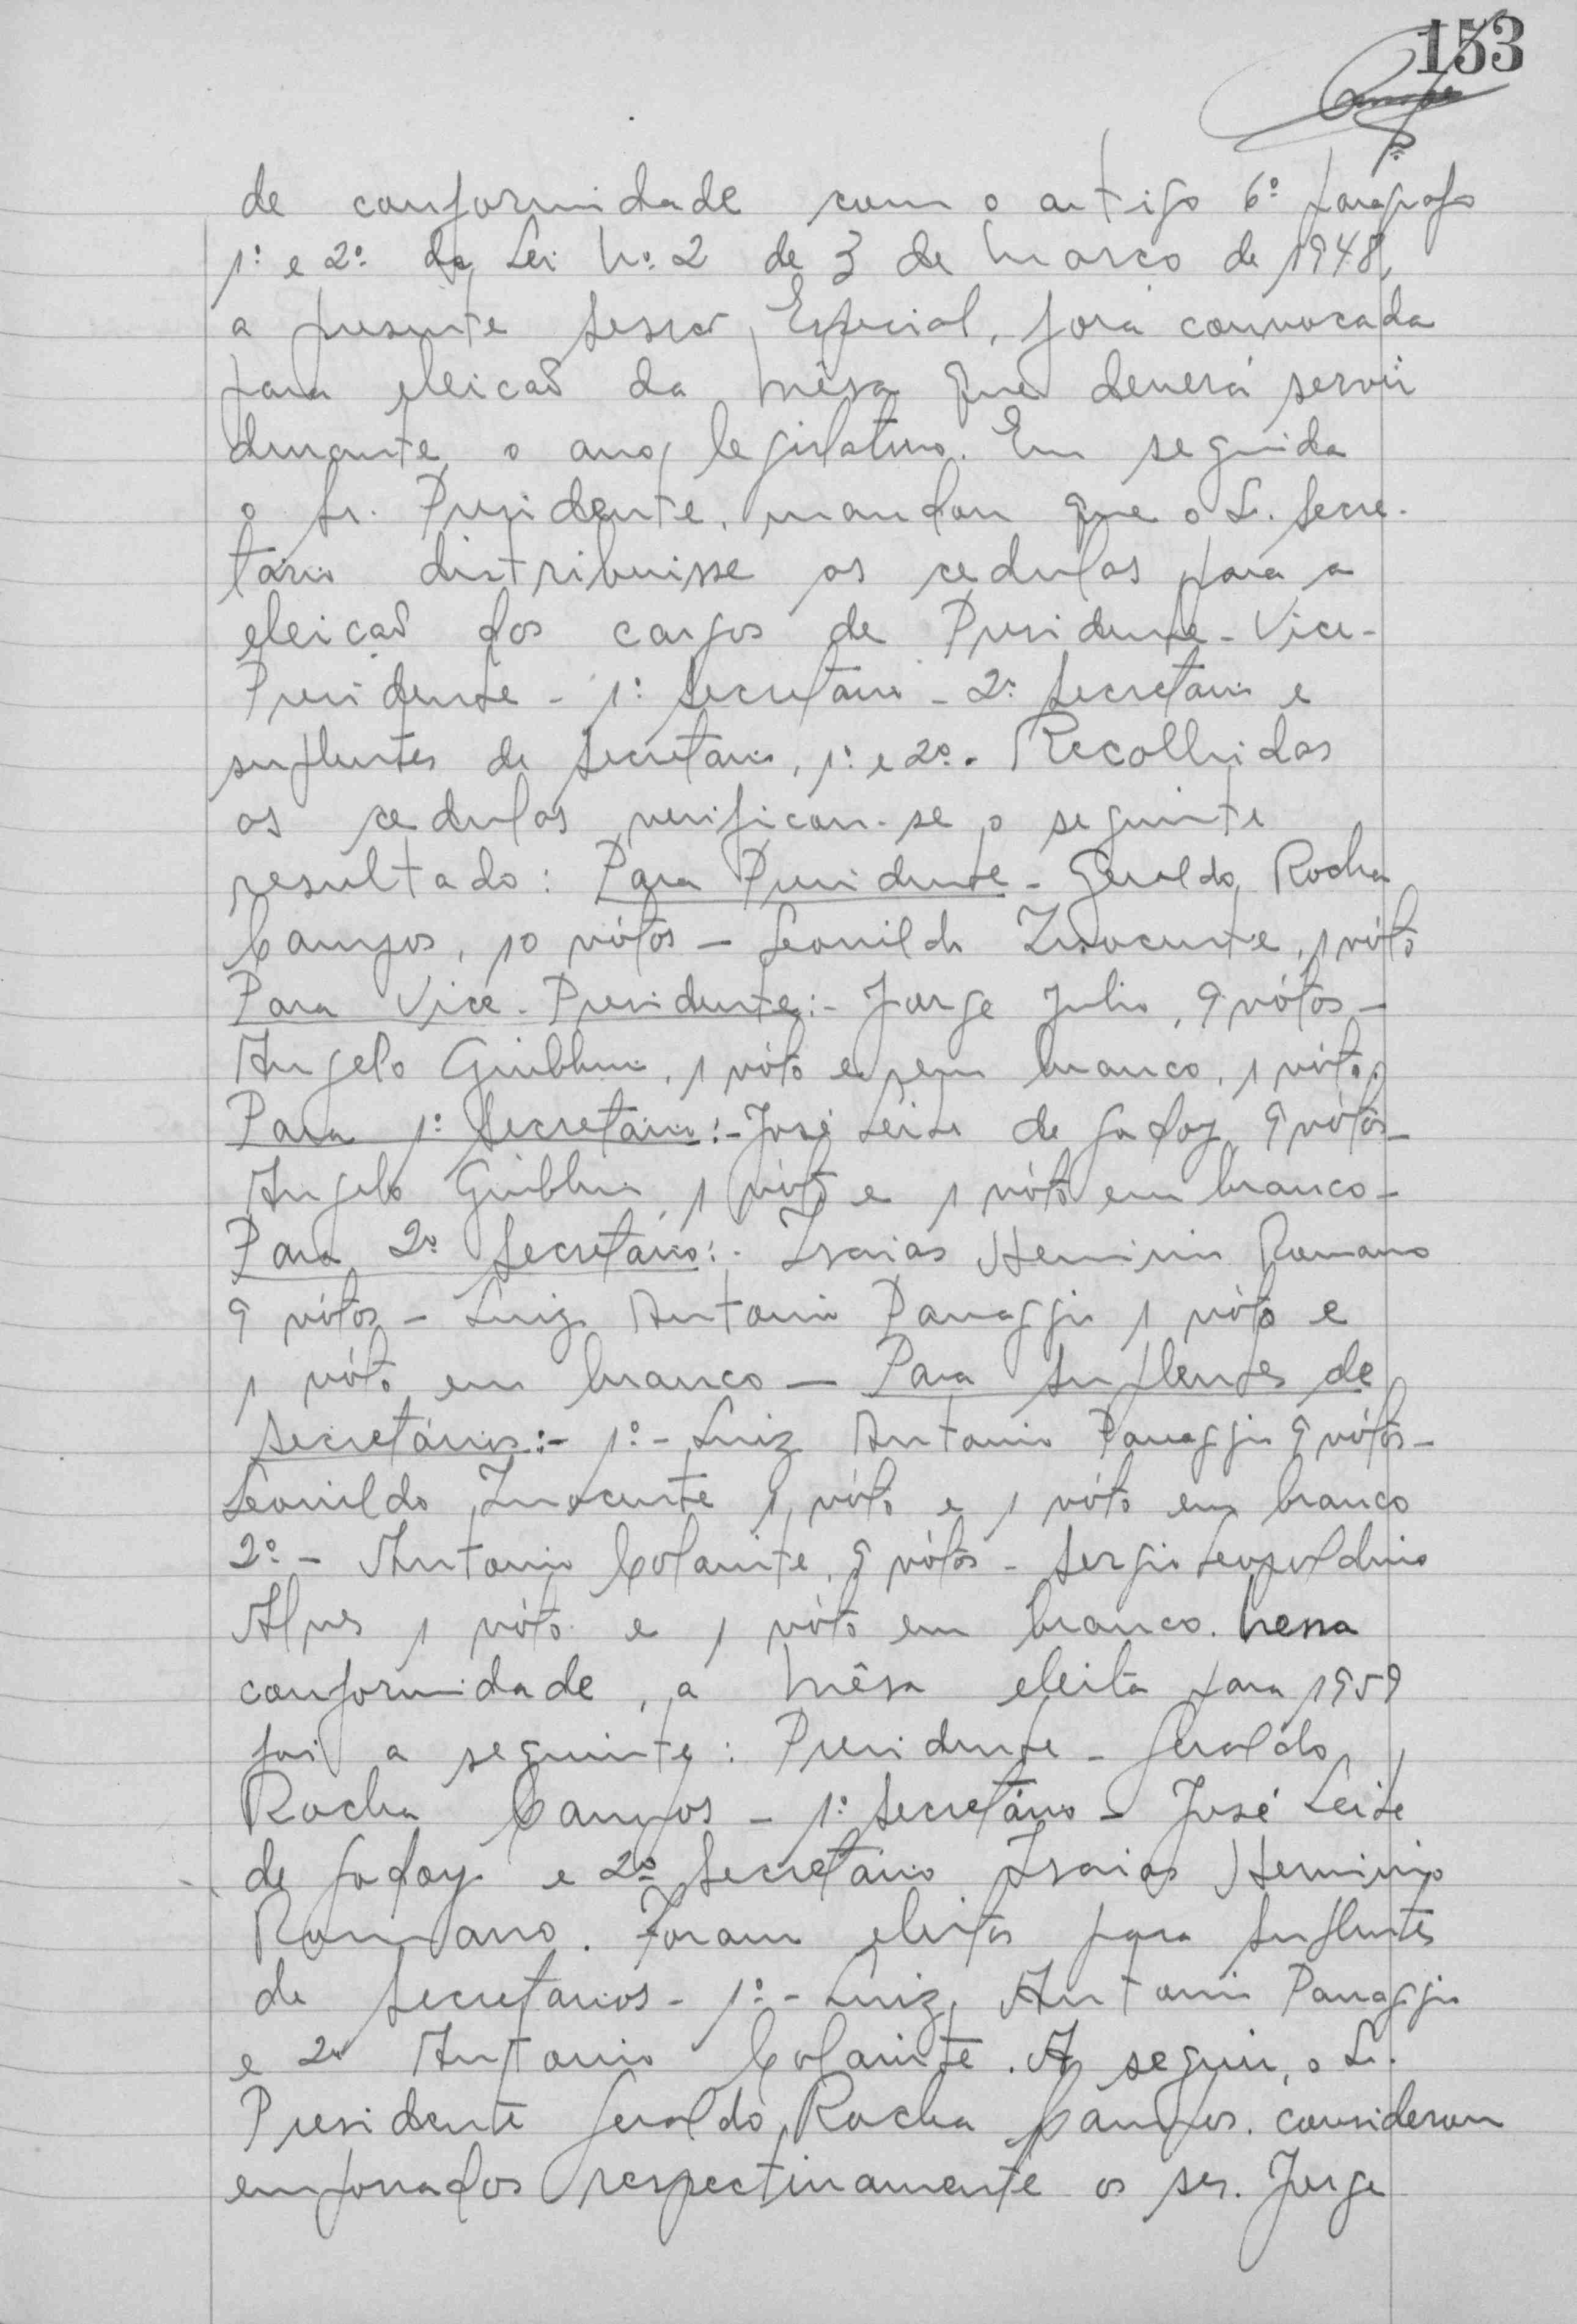 153
de conformidade com o artigo 6º paragrafo
1º e 2º da Lei Nº 2 de 3 de Março de 1948,
a presente Sessão Especial, fora convocada
para eleição da Mêsa que deverá servir
durante o ano legislativo. Em seguida
o Sr. Presidente, mandou que o Sr. Secre-
tário distribuisse as cedulas para a
eleição dos cargos de Presidente - Vice-
Presidente - 1º Secretário - 2º Secretario e
suplentes de Secretario, 1º e 2º. Recolhidas
as cedulas verificou-se o seguinte
resultado: Para Presidente - Geraldo Rocha
Campos, 10 vótos - Leonildo Inocente, 1 vóto
Para Vice-Presidente:- Jorge Julio, 9 vótos -
Angelo 1 vóto e em branco, 1 vóto.
Para 1º Secretário:- José Leite de Godoy 9 vótos -
Angelo 1 vóto e 1 vóto em branco -
Para 2º Secretário:- Isaias Herminio Romano
9 vótos - Luiz Antonio Panaggio 1 vóto e
1 vóto em branco - Para Suplentes de
Secretários:- 1º - Luiz Antonio Panaggio 9 vótos -
Leonildo Inocente 1 vóto e 1 vóto em branco
2º - Antonio Colante, 9 vótos - Sergio Leopoldino
Alves 1 vóto e 1 vóto em branco. Nessa
conformidade, a Mêsa eleita para 1959
foi a seguinte: Presidente - Geraldo
Rocha Campos - 1º Secretário - José Leite
de Godoy e 2º Secretário Isaias Herminio
Romano. Foram eleitos para Suplentes
de Secretarios - 1º - Luiz Antonio Panaggio
e 2º Antonio Colante. A seguir, o Sr.
Presidente Geraldo Rocha Campos, considerou
empossados respectivamente os srs. Jorge